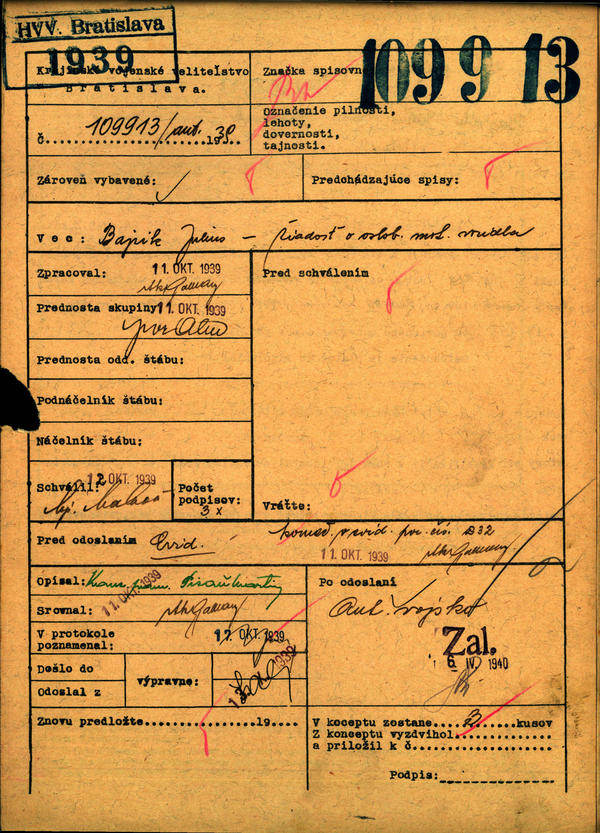 HVV. Bratislava
1939
109913
Krajinské vojenské veliteľstvo
Bratislava.
Značka spisovne
Označenie pilnosti,
lehoty,
dovernosti,
tajnosti.
č. 109913/aut. 1939
Zároveň vybavené:
Predchádzajúce spisy:
Vec: Bajzík Julius — Žiadosť o oslob. mot. vozidla
Zpracoval: 11. OKT. 1939
Pred schválením
Prednosta skupiny 11. OKT. 1939
Prednosta odd. štábu:
Podnáčelník štábu:
Náčelník štábu:
Schválil: 12 OKT. 1939
Počet
podpisov:
3 x
Vráťte:
Pred odoslaním Evid.
11. OKT. 1939
Opísal:
11. OKT. 1939
Po odoslaní
Aut. vojsko
Srovnal:
V protokole
poznamenal: 17. OKT. 1939
Zal.
6. IV 1940
Došlo do
Odoslal z
výpravne:
Znovu predložte 19
V koceptu zostane 3 kusov
Z konceptu vyzdvihol
a priložil k č.
Podpis: